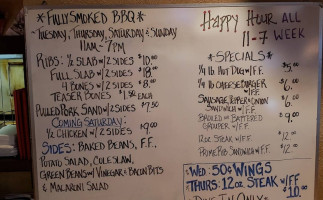 *FULLY SMOKED BBQ*
TUESDAY, THURSDAY, SATURDAY & SUNDAY
11AM - 7PM
RIBS: ½ SLAB W/ 2 SIDES $10.00
FULL SLAB W/ 2 SIDES $18.00
4 BONES W/ 2 SIDES $8.00
TEASER BONES $1 EACH
PULLED PORK SAND W/ 2 SIDES $7.50
COMING SATURDAY:
½ CHICKEN W/ 2 SIDES $9.00
SIDES: BAKED BEANS, F.F.,
POTATO SALAD, COLESLAW,
GREEN BEANS W/ VINEGAR & BACON BITS
& MACARONI SALAD
HAPPY HOUR ALL
11-7 WEEK
*SPECIALS*
¼ lb HOT DOG W/ F.F. $5.00
¼ lb CHEESEBURGER W/ F.F. $6.00
SAUSAGE, PEPPER & ONION
SANDWICH W/ F.F. $6.00
BROILED OR BATTERED
GROUPER W/ F.F. $9.00
12OZ STEAK W/ F.F. $12.00
PRIME RIB SANDWICH W/ F.F. $12.00
WED: 50¢ WINGS
THURS: 12OZ STEAK W/ F.F.
$10.00
DINE IN ONLY